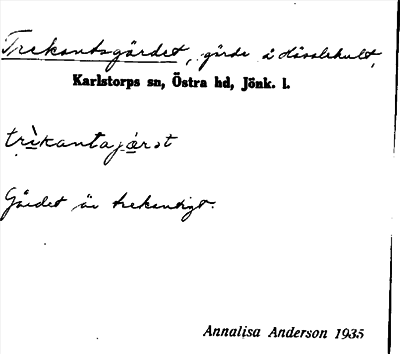 Trekantsgärdet, gärde å Hässlehult,
Karlstorps sn, Östra hd, Jönk. l.
trìkantajæ̀rət
Gärdet är trekantigt.
Annalisa Anderson 1935